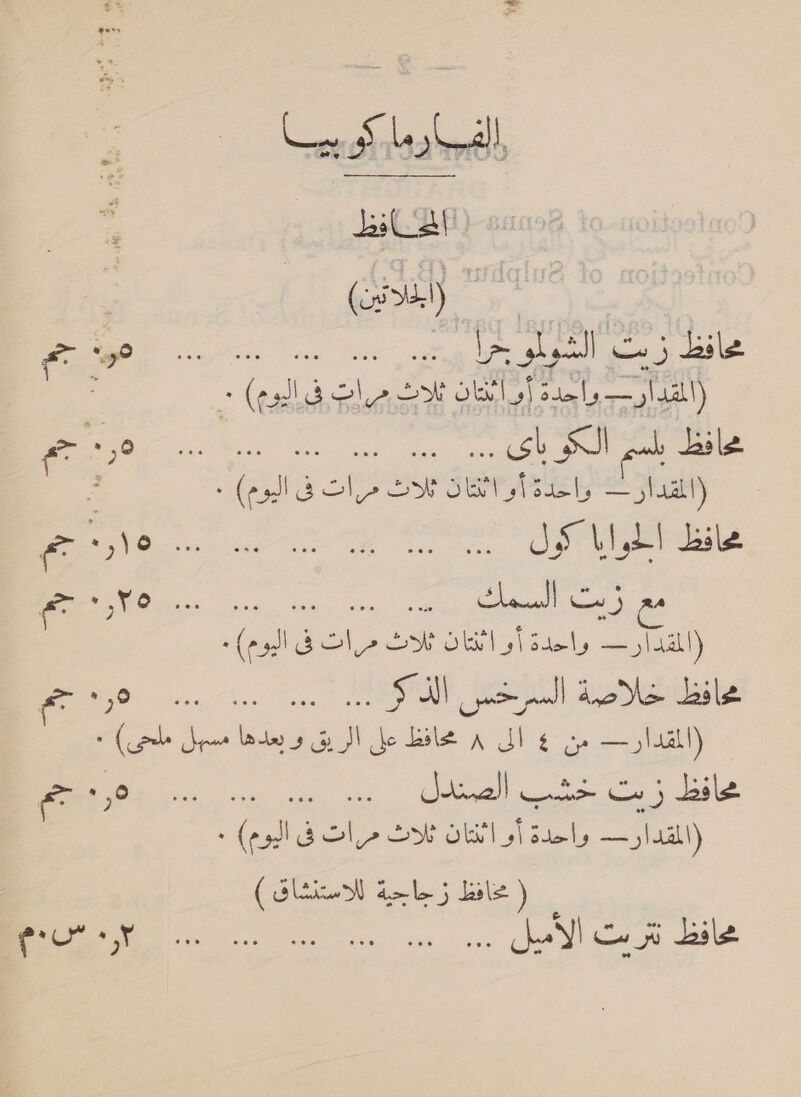 الفارماكوبيا
المحافظ
(الجلاتين)
محافظ زيت الشولموجرا ... ... ... ... ... ٥ر٠ جم
(المقدار — واحدة أو اثنتان ثلاث مرات فى اليوم) ٠
محافظ بلسم الكوباى ... ... ... ... ... ... ٥ر٠ جم
(المقدار — واحدة أو اثنتان ثلاث مرات فى اليوم) ٠
محافظ الجواياكول ... ... ... ... ... ... ١٥ر٠ جم
مع زيت السمك ... ... ... ... ... ٢٥ر٠ جم
(المقدار — واحدة أو اثنتان ثلاث مرات فى اليوم) ٠
محافظ خلاصة السرخس الذكر ... ... ... ... ٥ر٠ جم
(المقدار — من ٤ الى ٨ محافظ على الريق وبعدها مسهل ملحى) ٠
محافظ زيت خشب الصندل ... ... ... ... ٥ر٠ جم
(المقدار — واحدة أو اثنتان ثلاث مرات فى اليوم) ٠
( محافظ زجاجية للاستنشاق )
محافظ نتريت الأميل ... ... ... ... ... ... ٢ر٠ س٠م